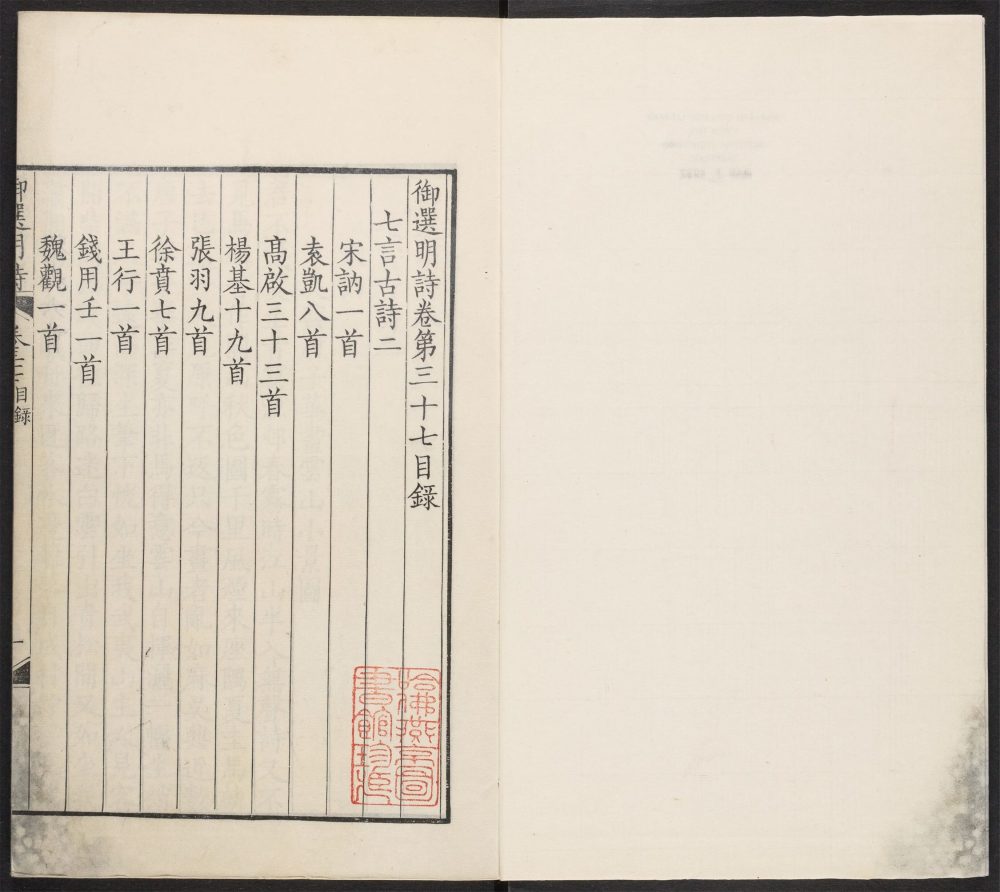 御選明詩卷第三十七目録
七言古詩二
宋訥一首
袁凱八首
髙啟三十三首
楊基十九首
張羽九首
徐賁七首
王行一首
錢用壬一首
魏觀一首
御選明詩
目録
一
哈佛燕京圖
書館珍藏